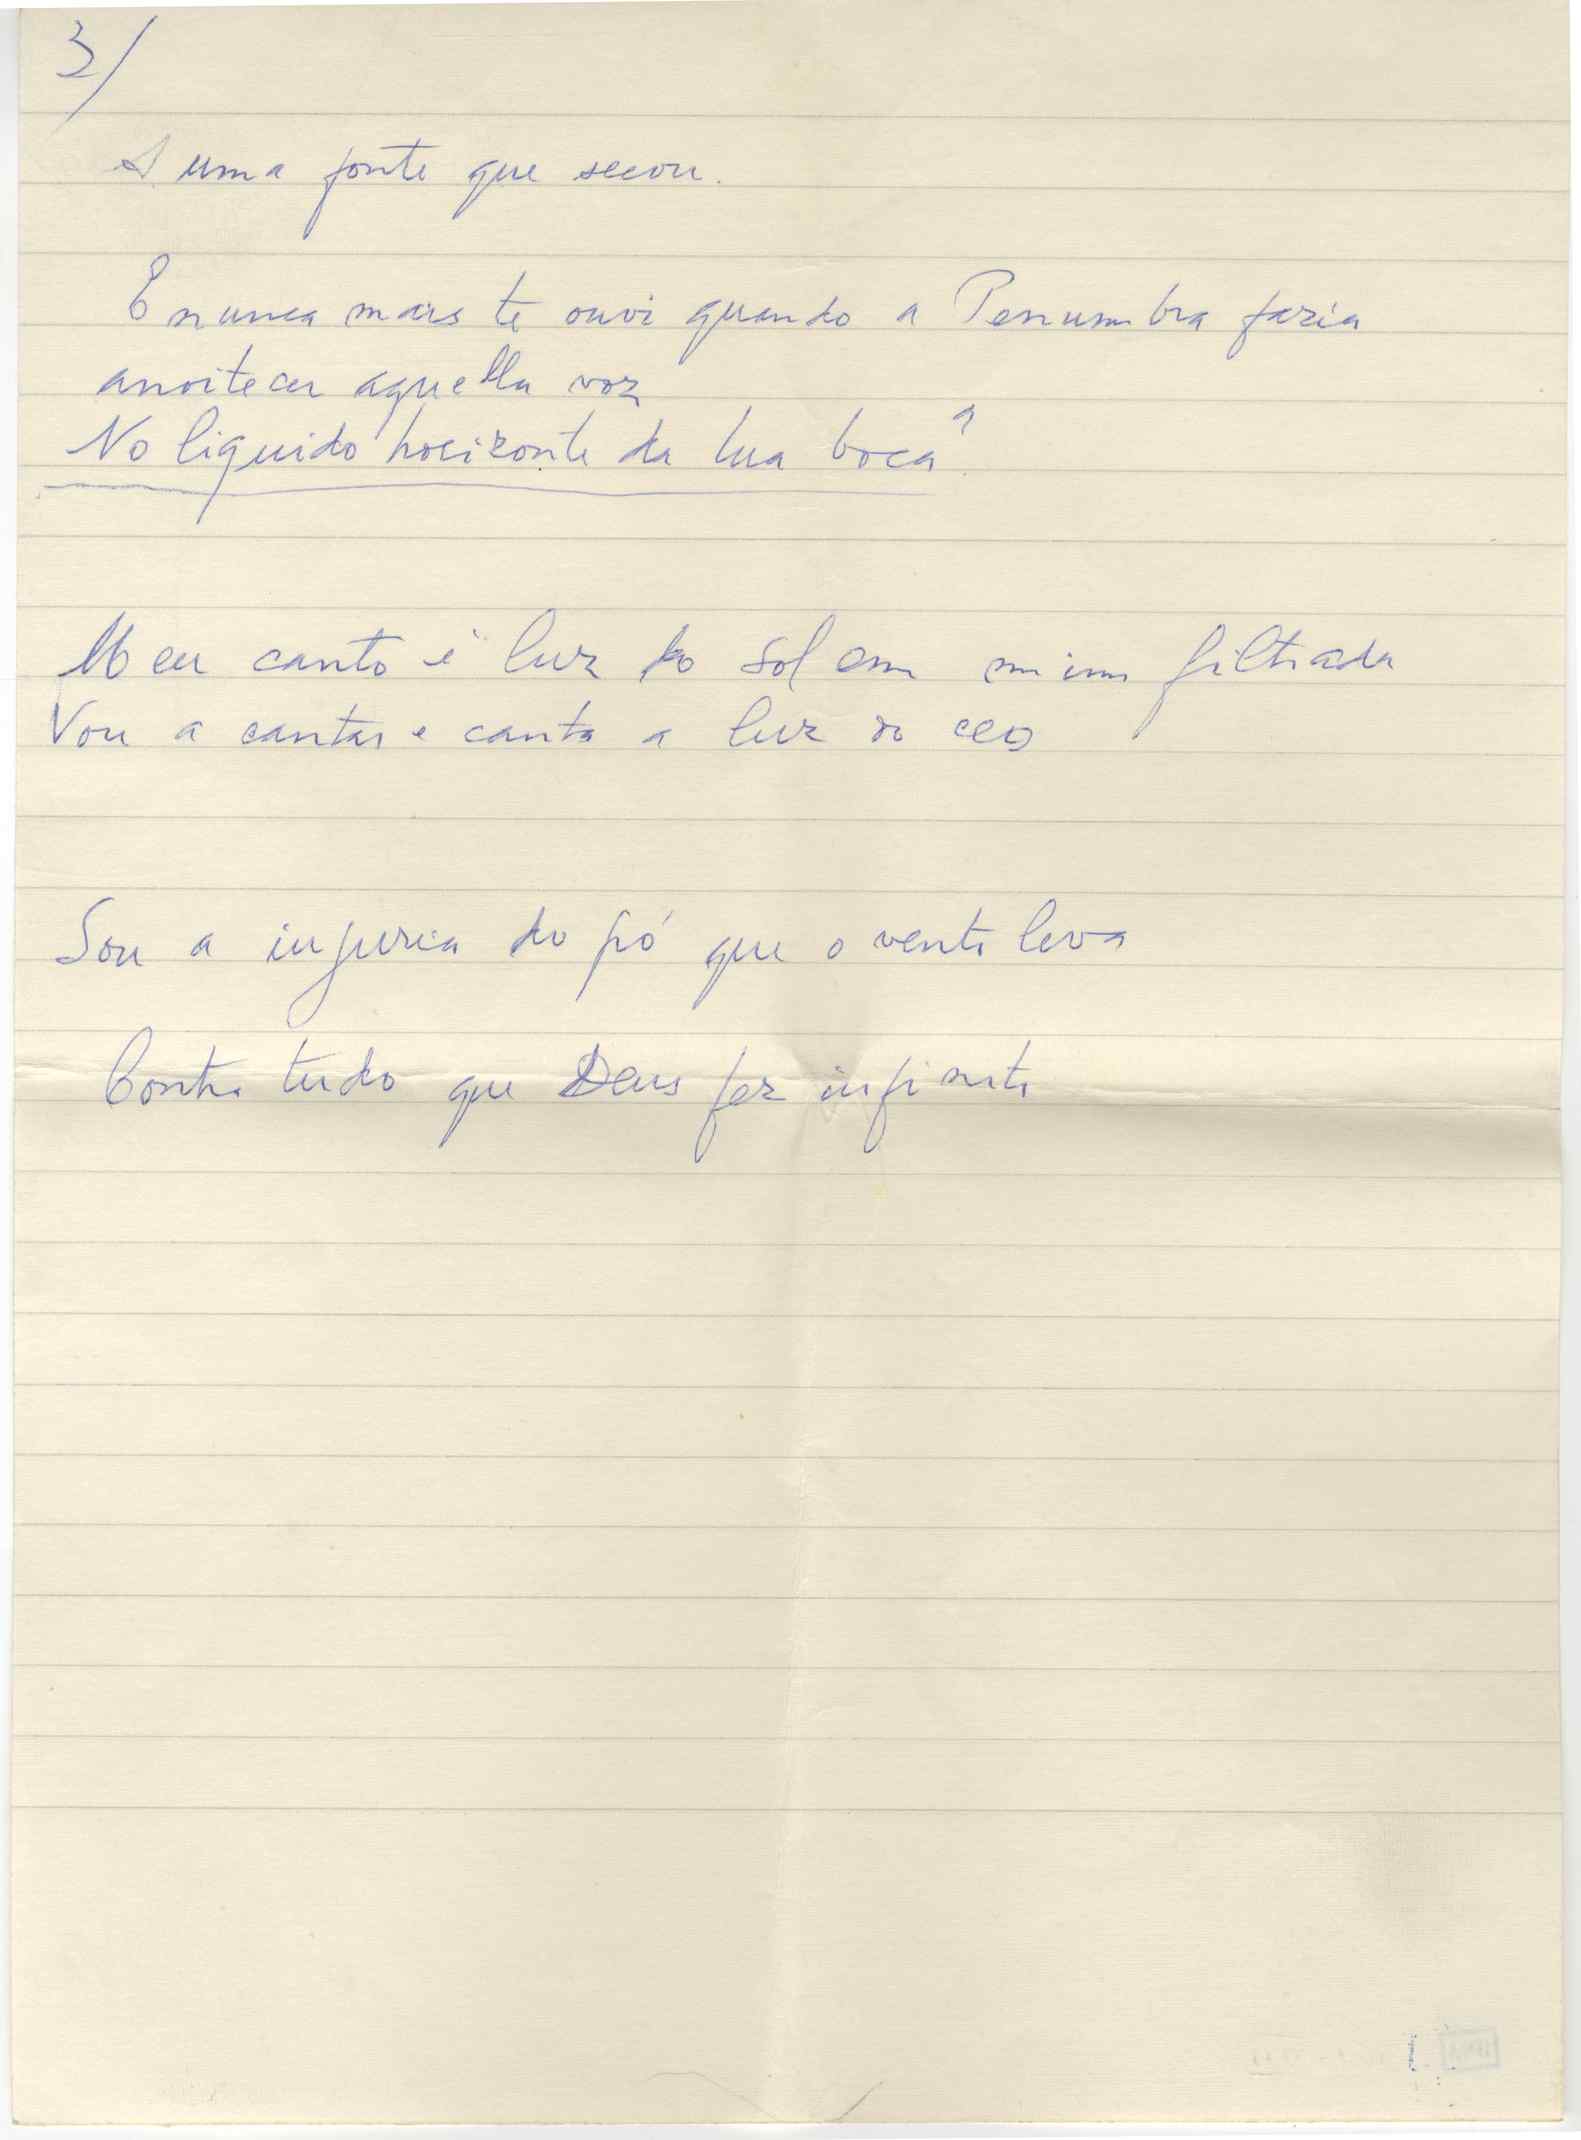 3/
A uma fonte que secou.
E nunca mais te ouvi quando a Penumbra fazia
anoitecer aquella voz
No liquido horizonte da tua boca?
Meu canto é luz do sol em mim filtrada
Vou a cantar e canta a luz do ceo
Sou a injuria do pó que o vento leva
Contra tudo que Deus fez infinito